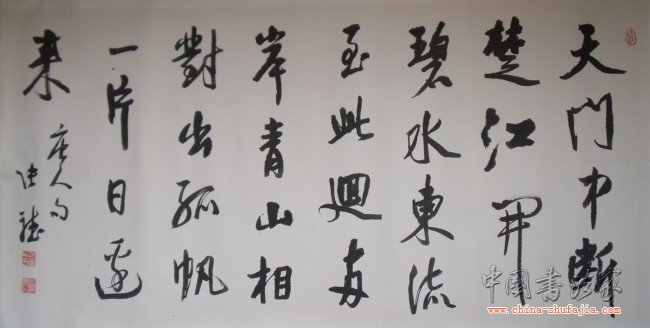 天門中斷
楚江開
碧水東流
至此迴兩
岸青山相
對出孤帆
一片日邊
來
唐人句
中国书法家
www.china-shufajia.com